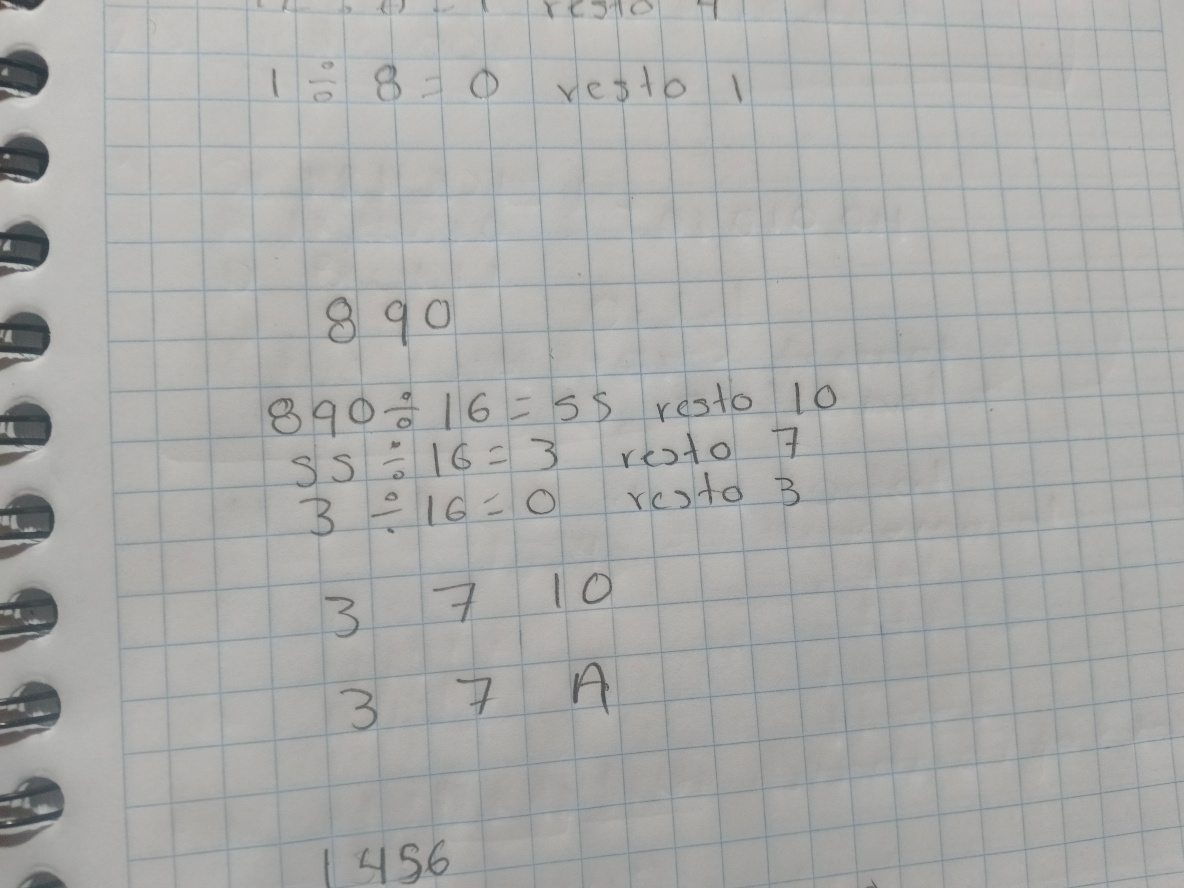 resto 4
1 ÷ 8 = 0 resto 1
890
890 ÷ 16 = 55 resto 10
55 ÷ 16 = 3 resto 7
3 ÷ 16 = 0 resto 3
3 7 10
3 7 A
1456